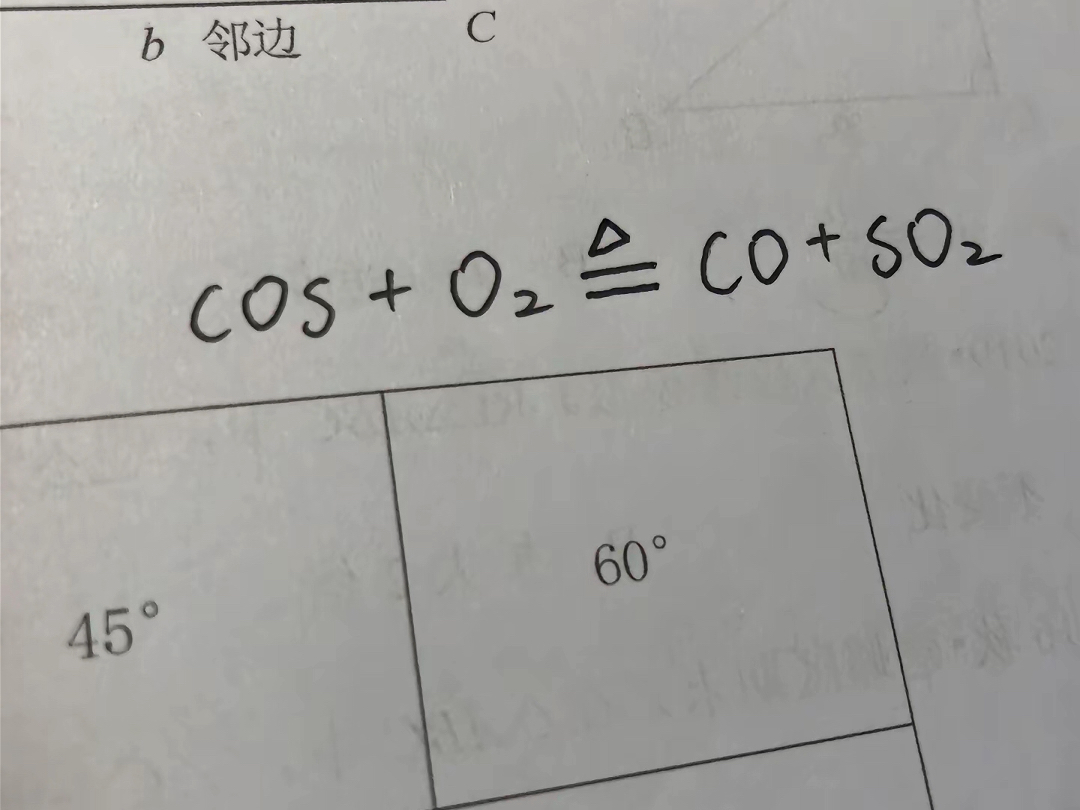 b 邻边 C
COS + O₂ ≜ CO + SO₂
45° 60°